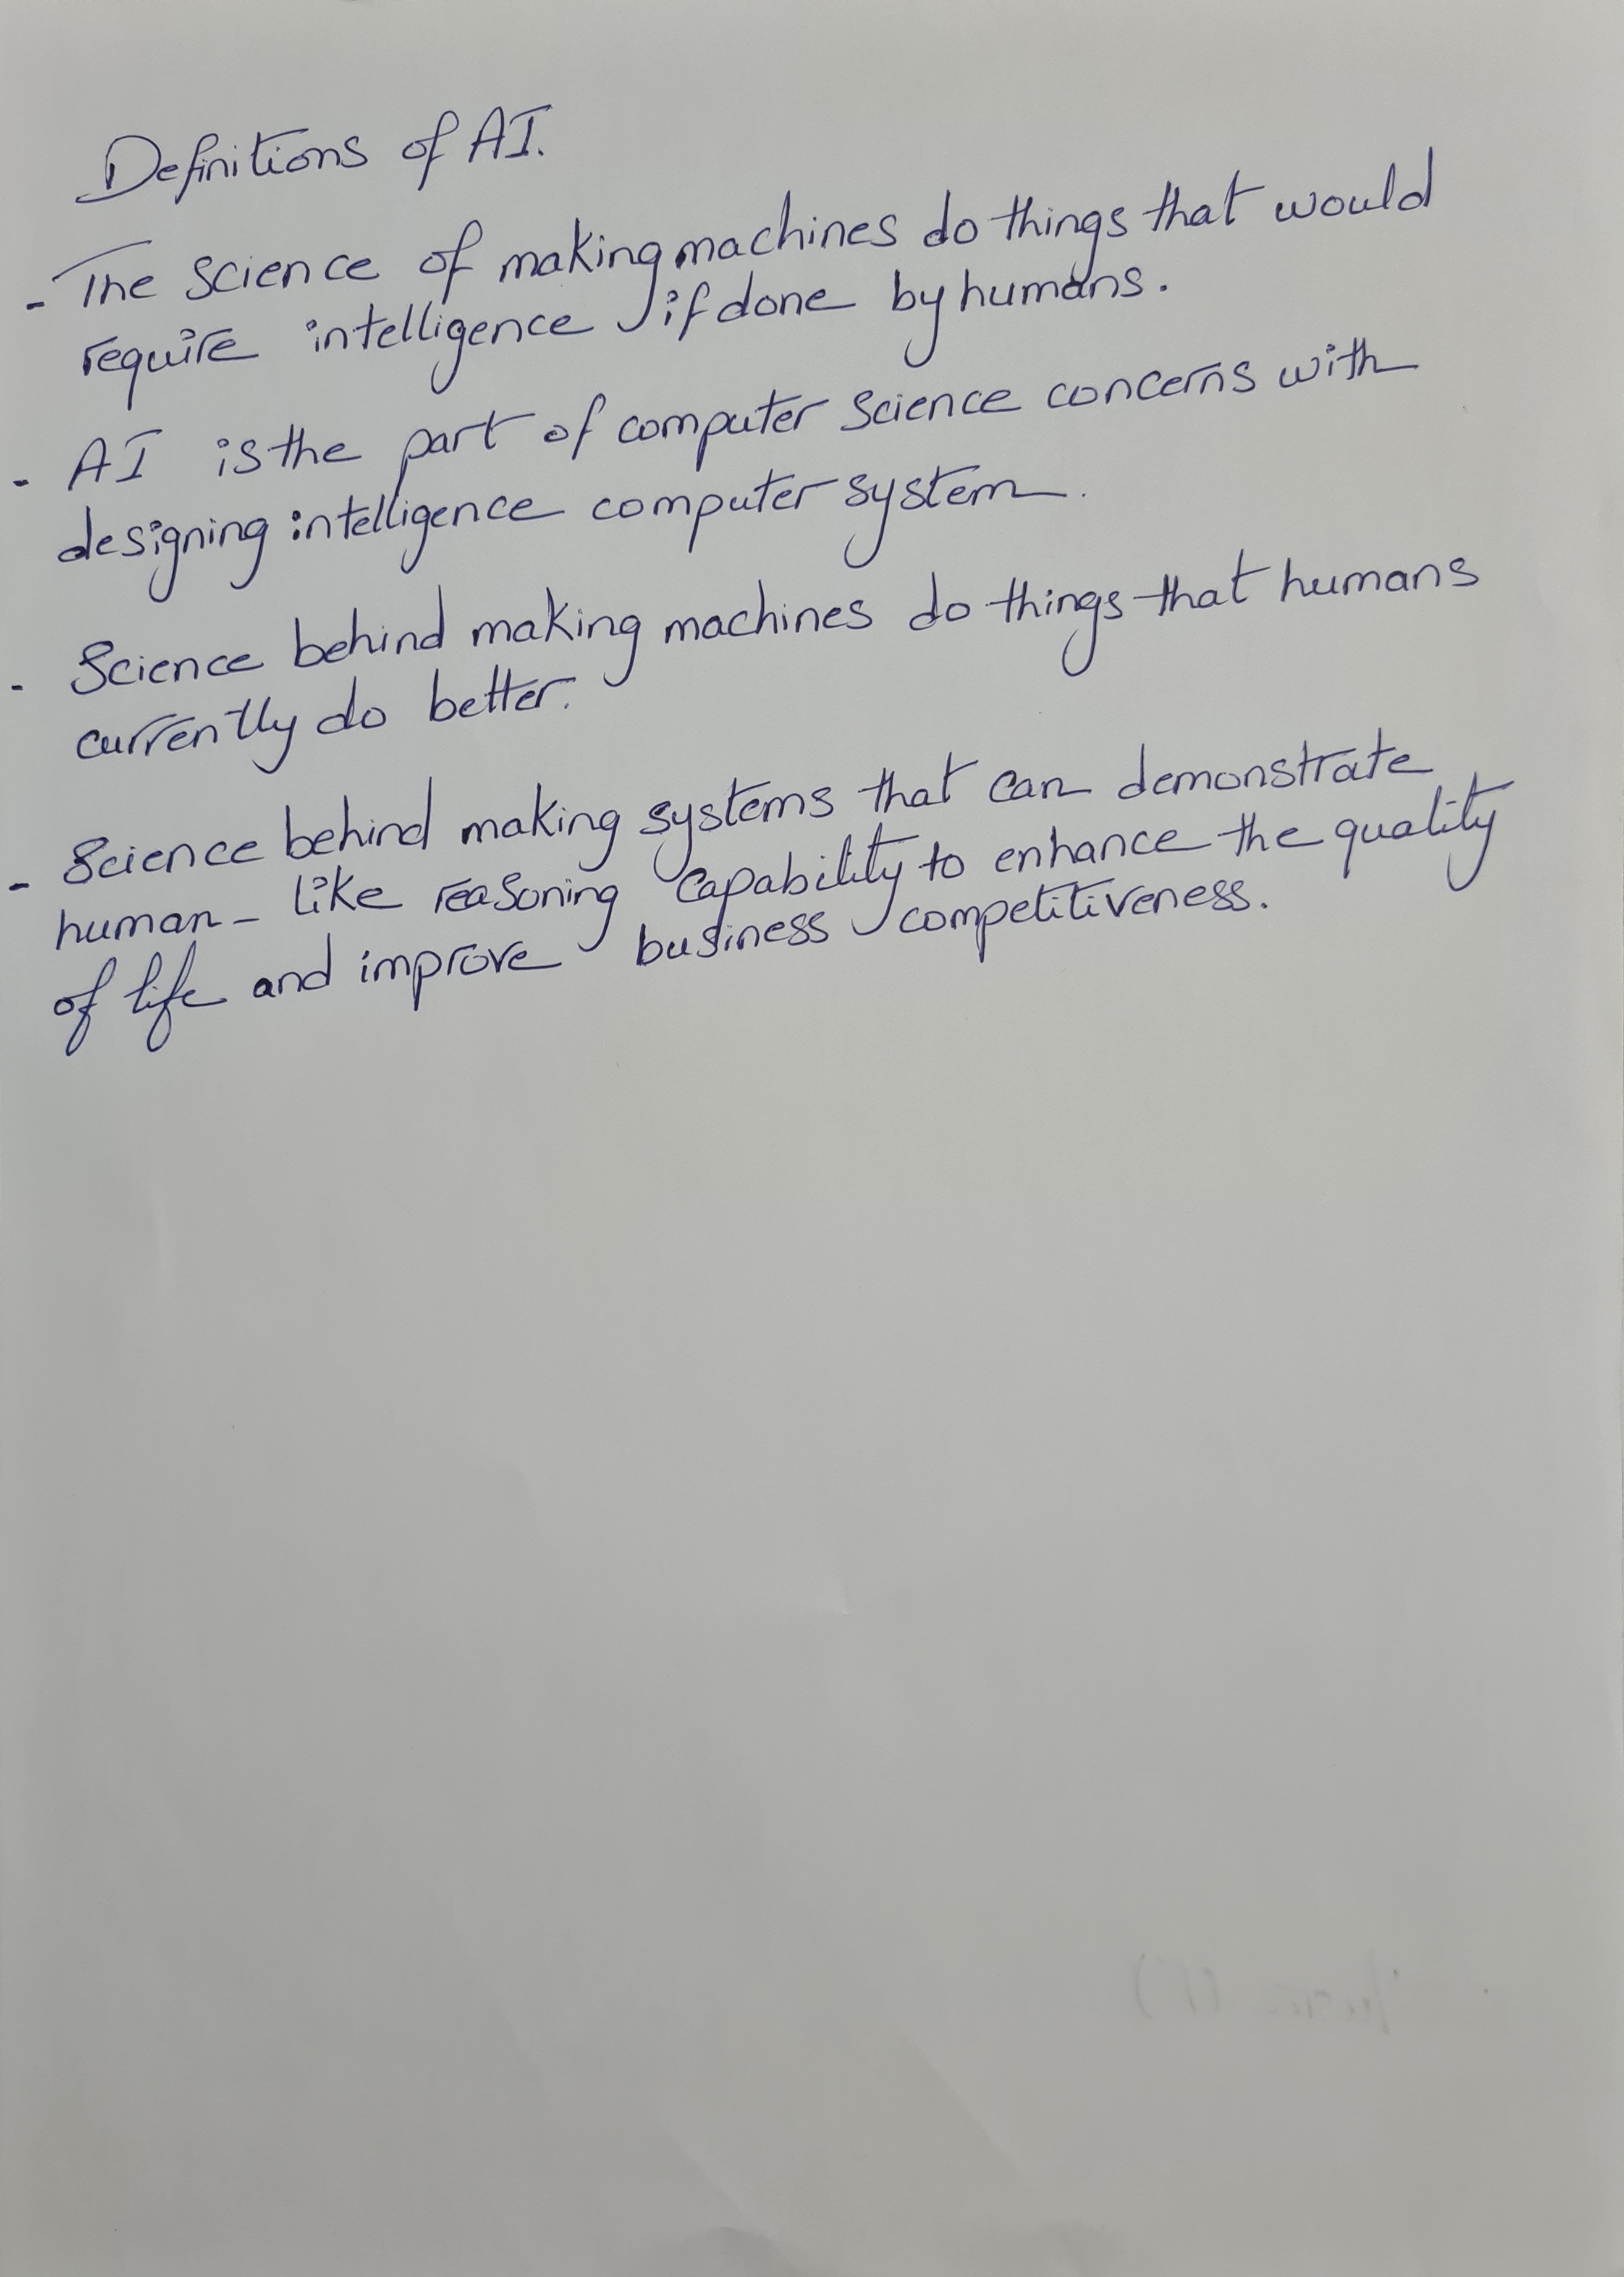 Definitions of AI.
- The science of making machines do things that would
require intelligence if done by humans.
- AI is the part of computer science concerns with
designing intelligence computer system.
- Science behind making machines do things that humans
currently do better.
- Science behind making systems that can demonstrate
human-like reasoning capability to enhance the quality
of life and improve business competitiveness.